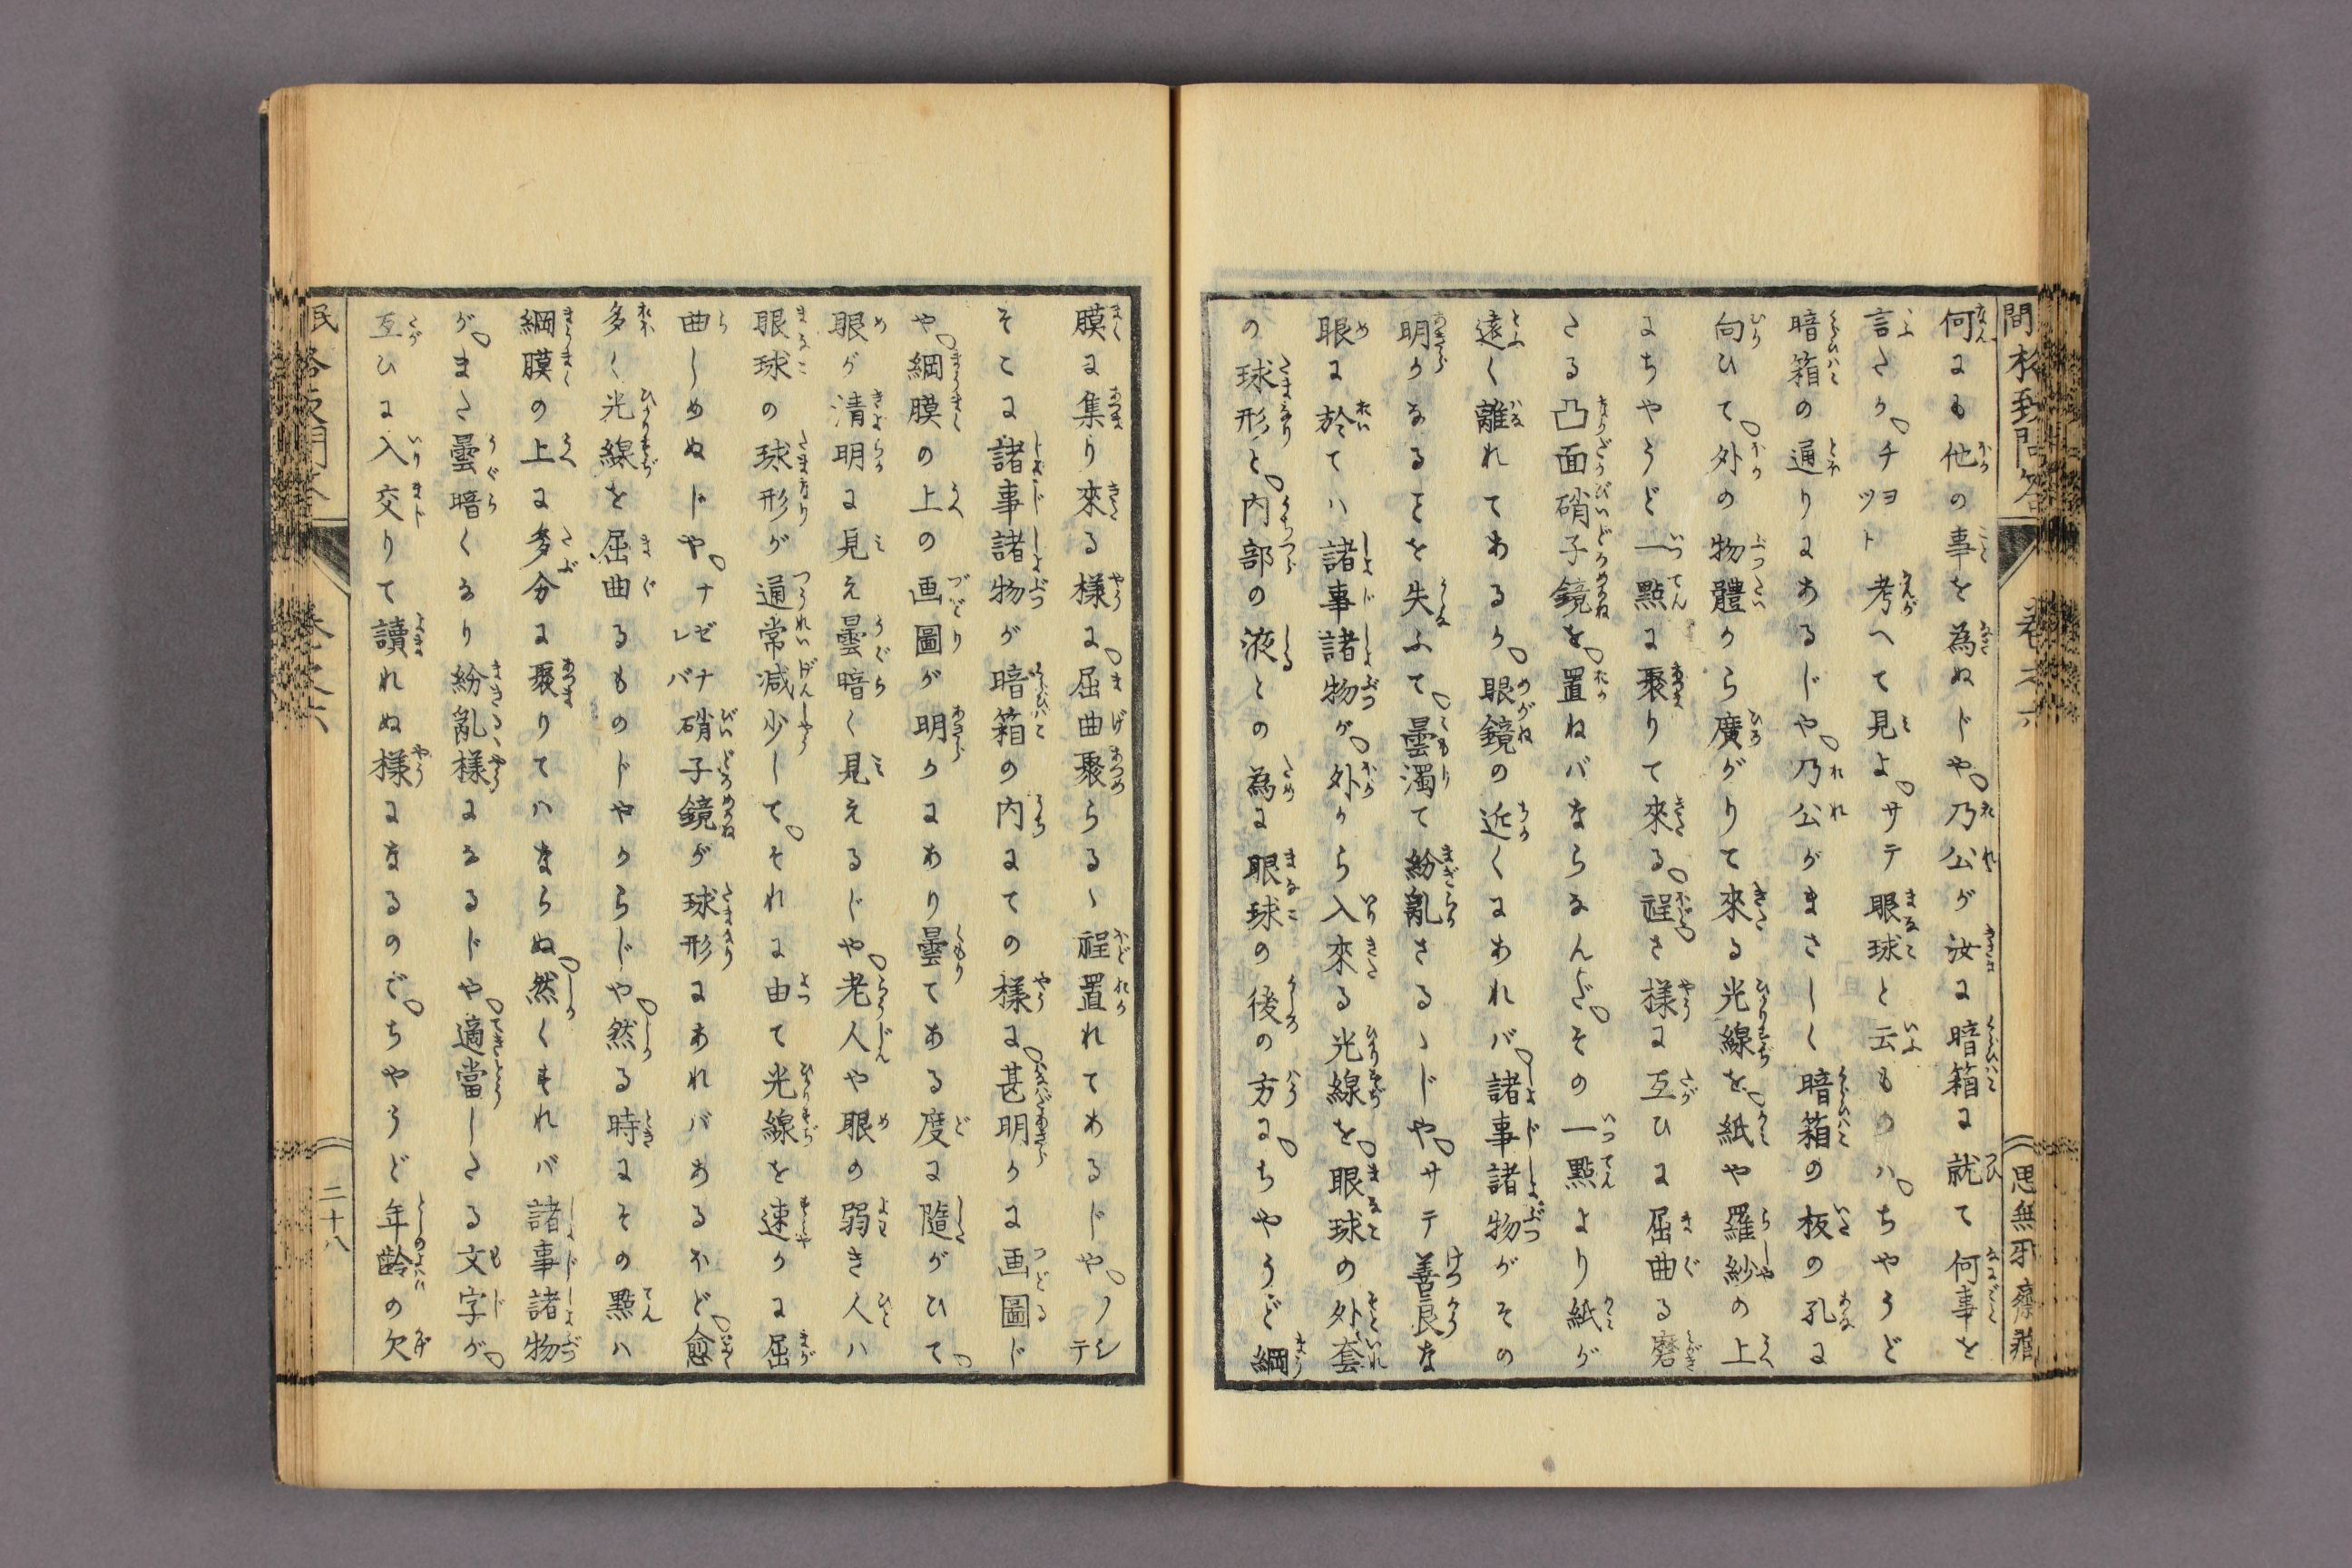 何にも他の事を為ぬじや。乃公が汝に暗箱に就て何事を
言たか。チヨツト考へて見よ。サテ眼球と云ものハ。ちやうど
暗箱の通りにあるじや。乃公がまさしく暗箱の板の孔に
向ひて。外の物體から廣がりて來る光線を。紙や羅紗の上
にちやうど一點に聚りて來る。程さ様に互ひに屈曲る磨
たる凸面硝子鏡を。置ねバならなんだ。その一點より紙が
遠く離れてあるか。眼鏡の近くにあれバ。諸事諸物がその
明かなるを失ふて。曇濁て紛亂さるゝじや。サテ善良な
眼に於てハ諸事諸物が。外から入來る光線を。眼球の外套
の球形と。内部の液との為に眼球の後の方に。ちやうど網
膜に集り來る様に。屈曲聚らるゝ程置れてあるじや。ソシテ
そこに諸事諸物が暗箱の内にての様に。甚明かに画圖じ
や。網膜の上の画圖が明かにあり曇てある度に隨がひて。
眼が清明に見え曇暗く見えるじや。老人や眼の弱き人ハ
眼球の球形が通常減少して。それに由て光線を速かに屈
曲しめぬじや。ナゼナレバ硝子鏡が球形にあれバあるほど。愈
多く光線を屈曲るものじやからじや。然る時にその點ハ
網膜の上に多分に聚りてハならぬ。然くすれバ諸事諸物
が。また曇暗くなり紛亂様になるじや。適當したる文字が。
互ひに入交りて讀れぬ様になるので。ちやうど年齢の欠
卷之六
思無邪齋藏
二十八